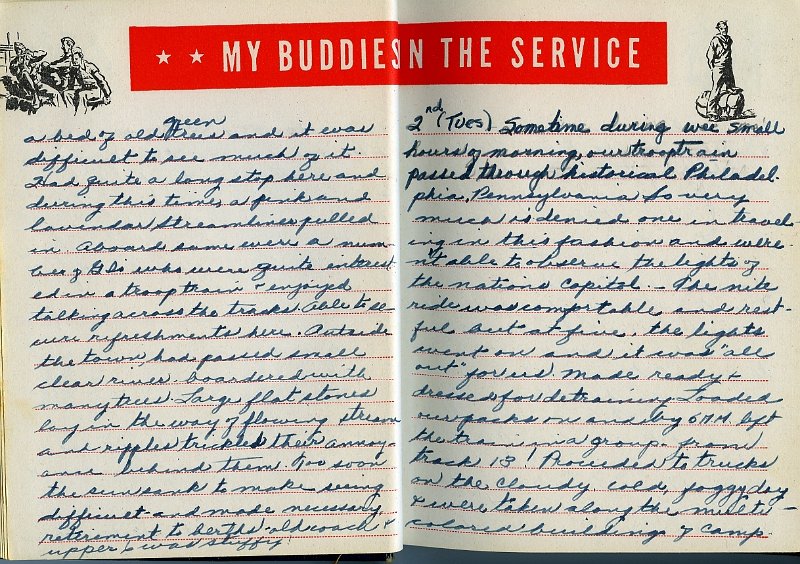 ★ ★ MY BUDDIES N THE SERVICE
green
a bed of old trees and it was
difficult to see much of it
Had quite a long stop here and
during this time a pink and
lavendar streamliner pulled
in. Aboard same were a num-
ber of GIs who were quite interest-
ed in a troop train & enjoyed
talking across the tracks. Able to se-
cure refreshments here. Outside
the town, had passed small
clear river boardered with
many trees. Large flat stones
lay in the way of flowing stream
and ripples trickled their annoy-
ance behind them. Too soon
the sun sank to make seeing
difficult and made necessary
retirement to berths. old coach &
upper was stuffy!
2nd (Tues) Sometime during wee small
hours of morning, our troop train
passed through historical Philadel-
phia, Pennsylvania. So very
much is denied one in travel-
ing in this fashion and were
n't able to observe the lights of
the nations capitol. - The nite
ride was comfortable and rest-
ful but at five, the lights
went on and it was "all
out" for us. Made ready &
dressed for detraining. Loaded
our packs on and by 6 AM left
the train in a group from
track 13! Proceeded to trucks
on the cloudy cold, foggy day
& were taken along the multi-
colored building of Camp